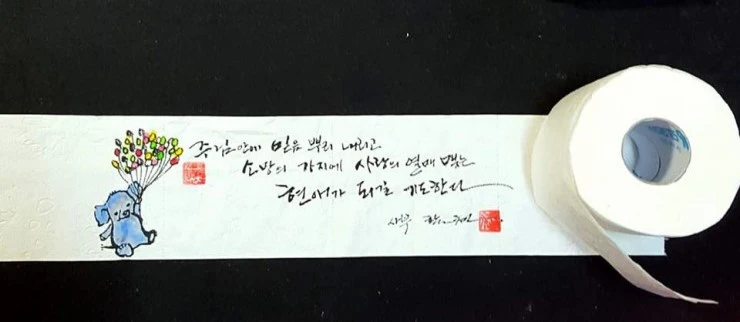 주님안에 믿음 뿌리 내리고
소망의 가지에 사랑의 열매 맺는
현애가 되길 기도한다
새롬